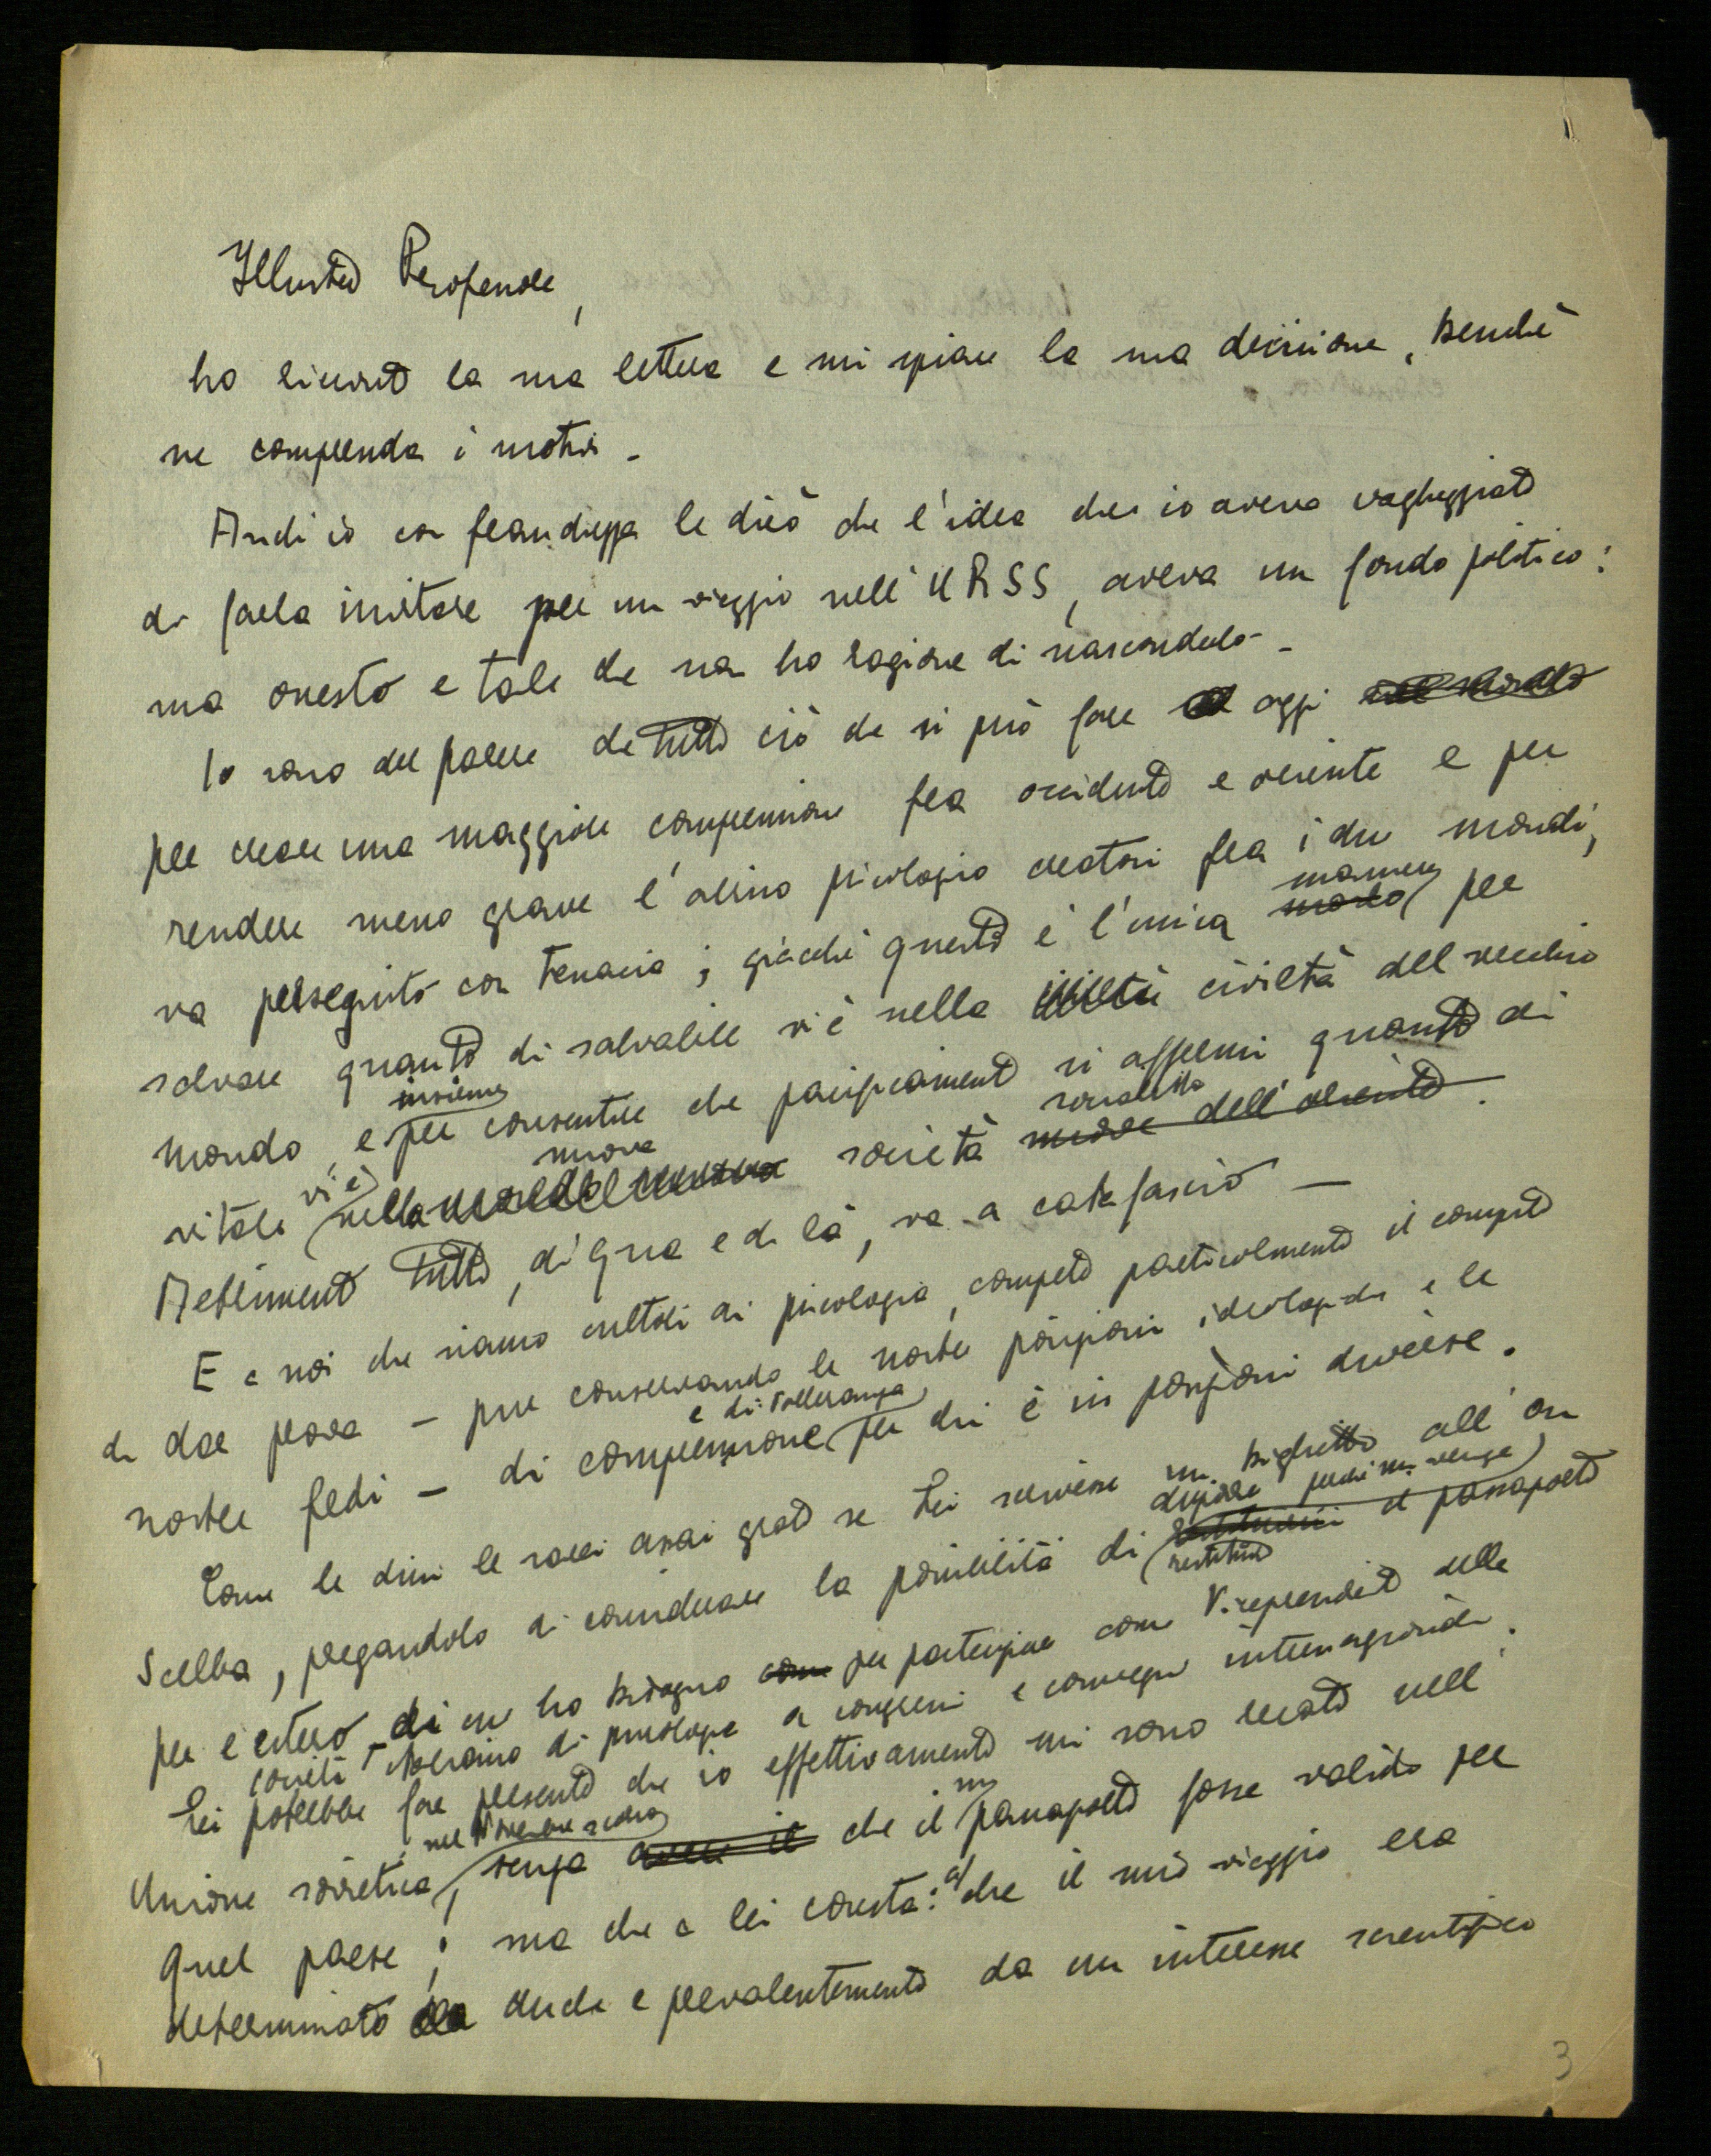 Illustre Professore,
ho ricevuto la sua lettera e mi spiace la sua decisione, benchè
ne comprenda i motivi -
Anch'io con franchezza le dirò che l'idea che io avevo vagheggiato
di farla invitare per un viaggio nell'URSS, aveva un fondo politico:
ma onesto e tale che non ho ragione di nasconderlo -
Io sono del parere che tutto ciò che si può fare oggi
per creare una maggiore comprensione fra occidente e oriente e per
rendere meno grave l'abisso psicologico creatosi fra i due mondi,
va perseguito con tenacia; giacchè questa è l'unica modo maniera per
salvare quanto di salvabile vi è nella civiltà civiltà del vecchio
mondo, e insieme per consentire che pacificamente si affermi quanto di
vitale vi è nella nuova società nuova dell'oriente socialista.
Altrimenti tutto, di qua e di là, va a catafascio -
E a noi che siamo cultori di psicologia, compete particolarmente il compito
di dar prova - pur conservando le nostre posizioni ideologiche e le
nostre fedi - di comprensione e di tolleranza per chi è in posizioni diverse.
Come le dissi le sarei assai grato se Lei scrivesse un biglietto all'on
Scelba, pregandolo di considerare la possibilità di disporre perchè mi venga restituito il passaporto
per l'estero di cui ho bisogno come per partecipare come Vicepresidente della
società italiana di psicologia a congressi e convegni internazionali.
Lei potrebbe far presente che io effettivamente mi sono recato nell'
Unione sovietica, nel novembre scorso, senza avere il che il mio passaporto fosse valido per
quel paese; ma che a lei consta: a/ che il mio viaggio era
determinato da anche e prevalentemente da un interesse scientifico
3